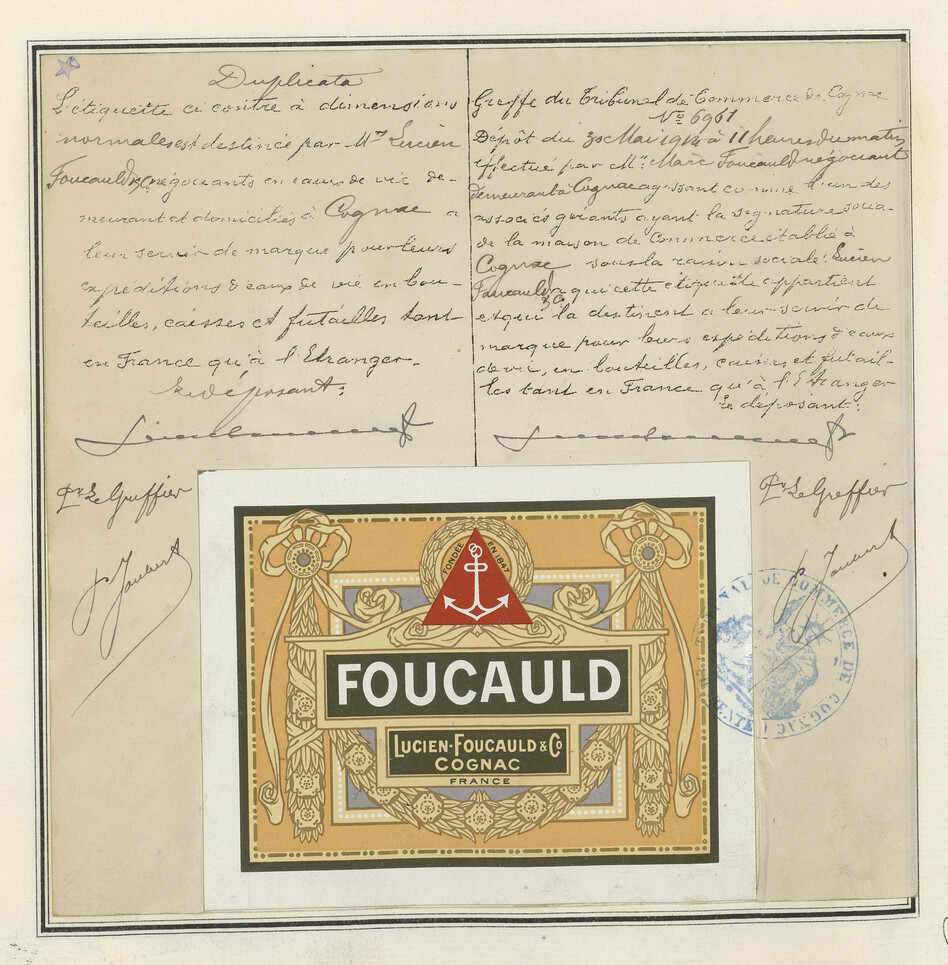 Duplicata
L'étiquette ci contre à dimensions
normales est destiné par Mrs Lucien
Foucauld & Co négociants en eaux de vie de-
meurant et domiciliés à Cognac a
leur servir de marque pour leurs
expéditions d'eaux de vie en bou-
teilles, caisses et futailles tant
en France qu'à l'Etranger.
Le déposant:
Pr Le Greffier
Greffe du Tribunal de Commerce de Cognac
No 6961
Dépôt du 30 Mai 1914 à 11 heures du matin
effectué par Mr Marc Foucauld négociant
demeurant à Cognac agissant comme l'un des
associés gérants ayant la signature socia-
de la maison de Commerce établie à
Cognac sous la raison sociale: Lucien
Foucauld & Co à qui cette étiquette appartient
et qui la destinent a leur servir de
marque pour leurs expéditions d'eaux
de vie, en bouteilles, caisses et futail-
les tant en France qu'à l'Etranger
Le déposant:
Pr Le Greffier
FONDÉE EN 1847
FOUCAULD
LUCIEN-FOUCAULD & Co
COGNAC
FRANCE
DE COMMERCE DE COGNAC